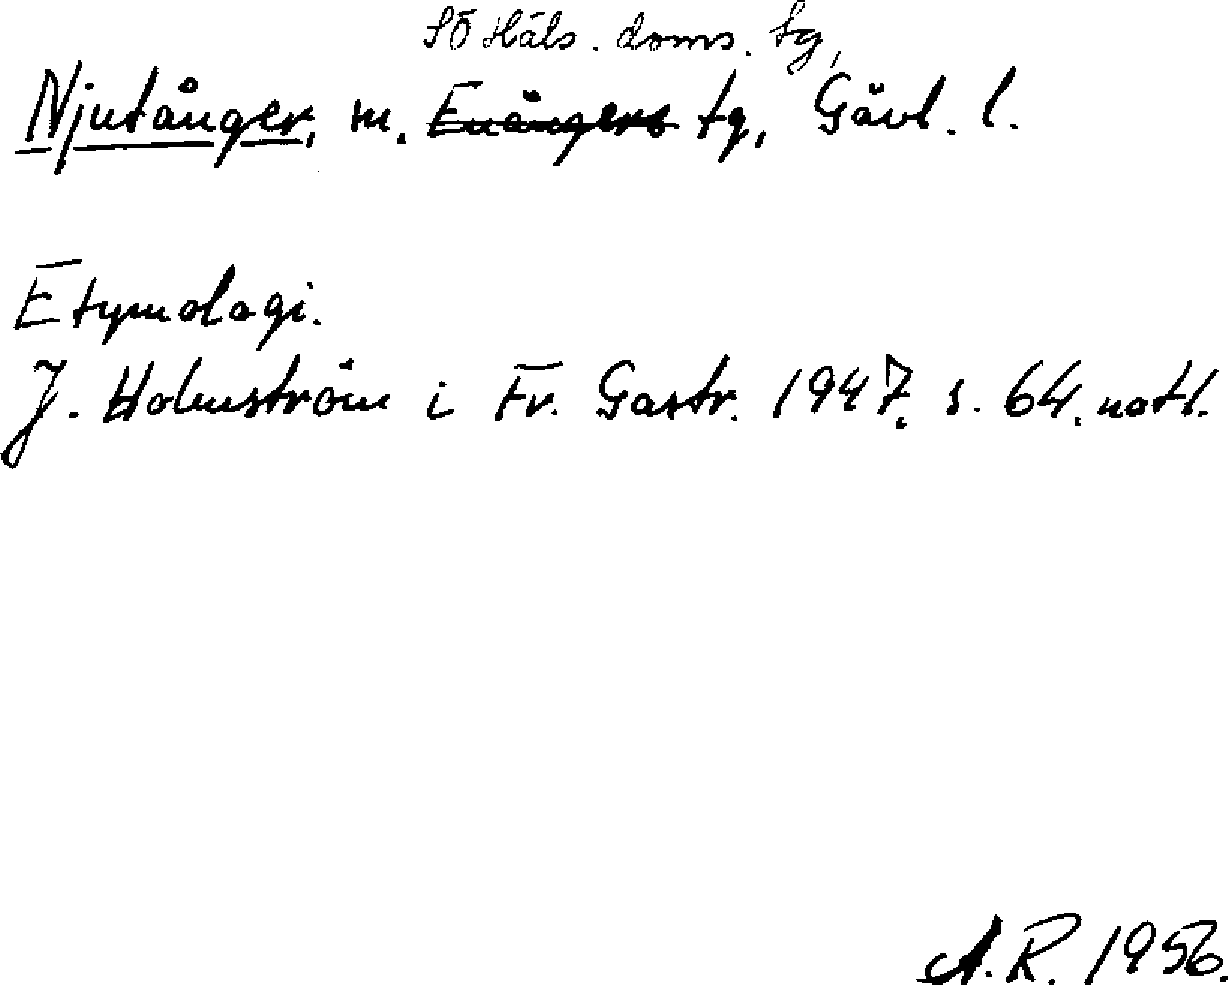 SÖ Häls. doms. tg,
Njutånger, sn. Enångers tg, Gävl. l.
Etymologi.
J. Holmström i Fr. Gastr. 1947, s. 64, not 1.
A.R. 1956.